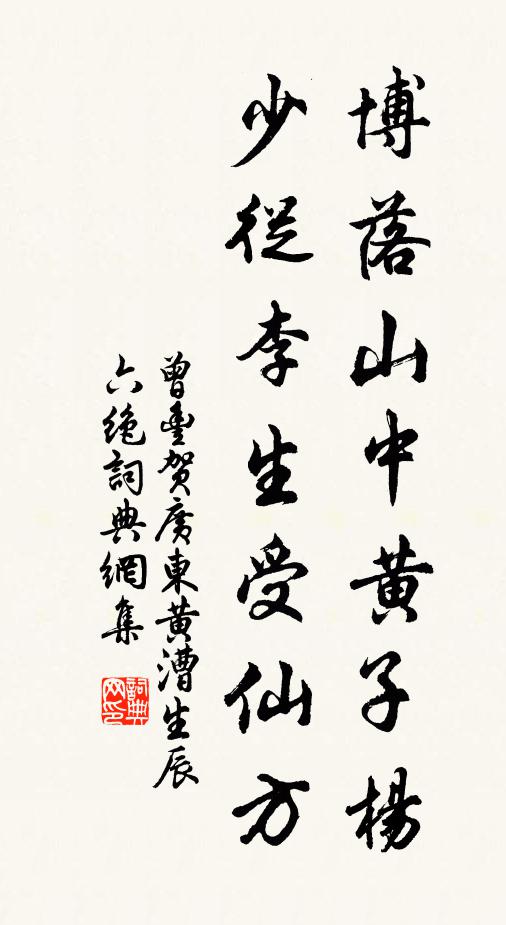 博落山中黄子楊
少從李生受仙方
曾豐賀廣東黃漕生辰
六絶詞典網集
詞典
网印